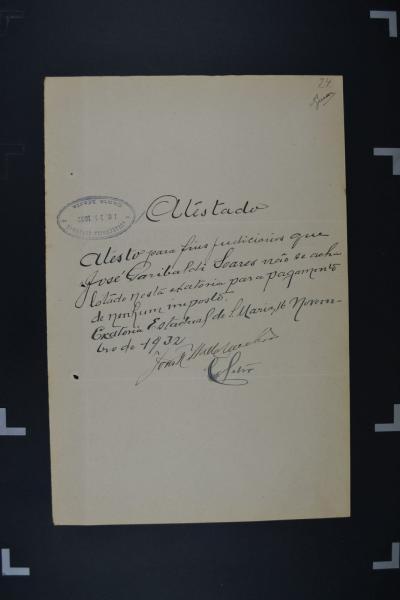 24
Atéstado
Atésto para fins judiciaios que
José Garibaldi Soares não se acha
lotado nesta exatoria para pagamento
de nenhum imposto.
Exatoria Estadual de S. Maria, 16 Novem-
bro de 1932